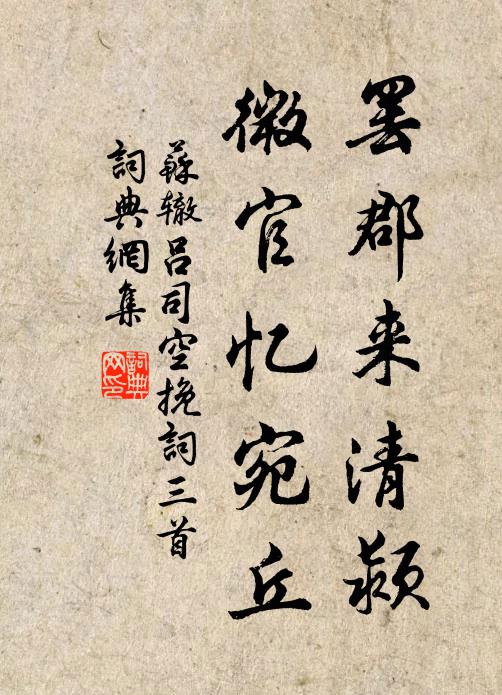 罢郡来清颍
微官忆宛丘
蘇辙吕司空挽詞三首
詞典網集
詞典网印